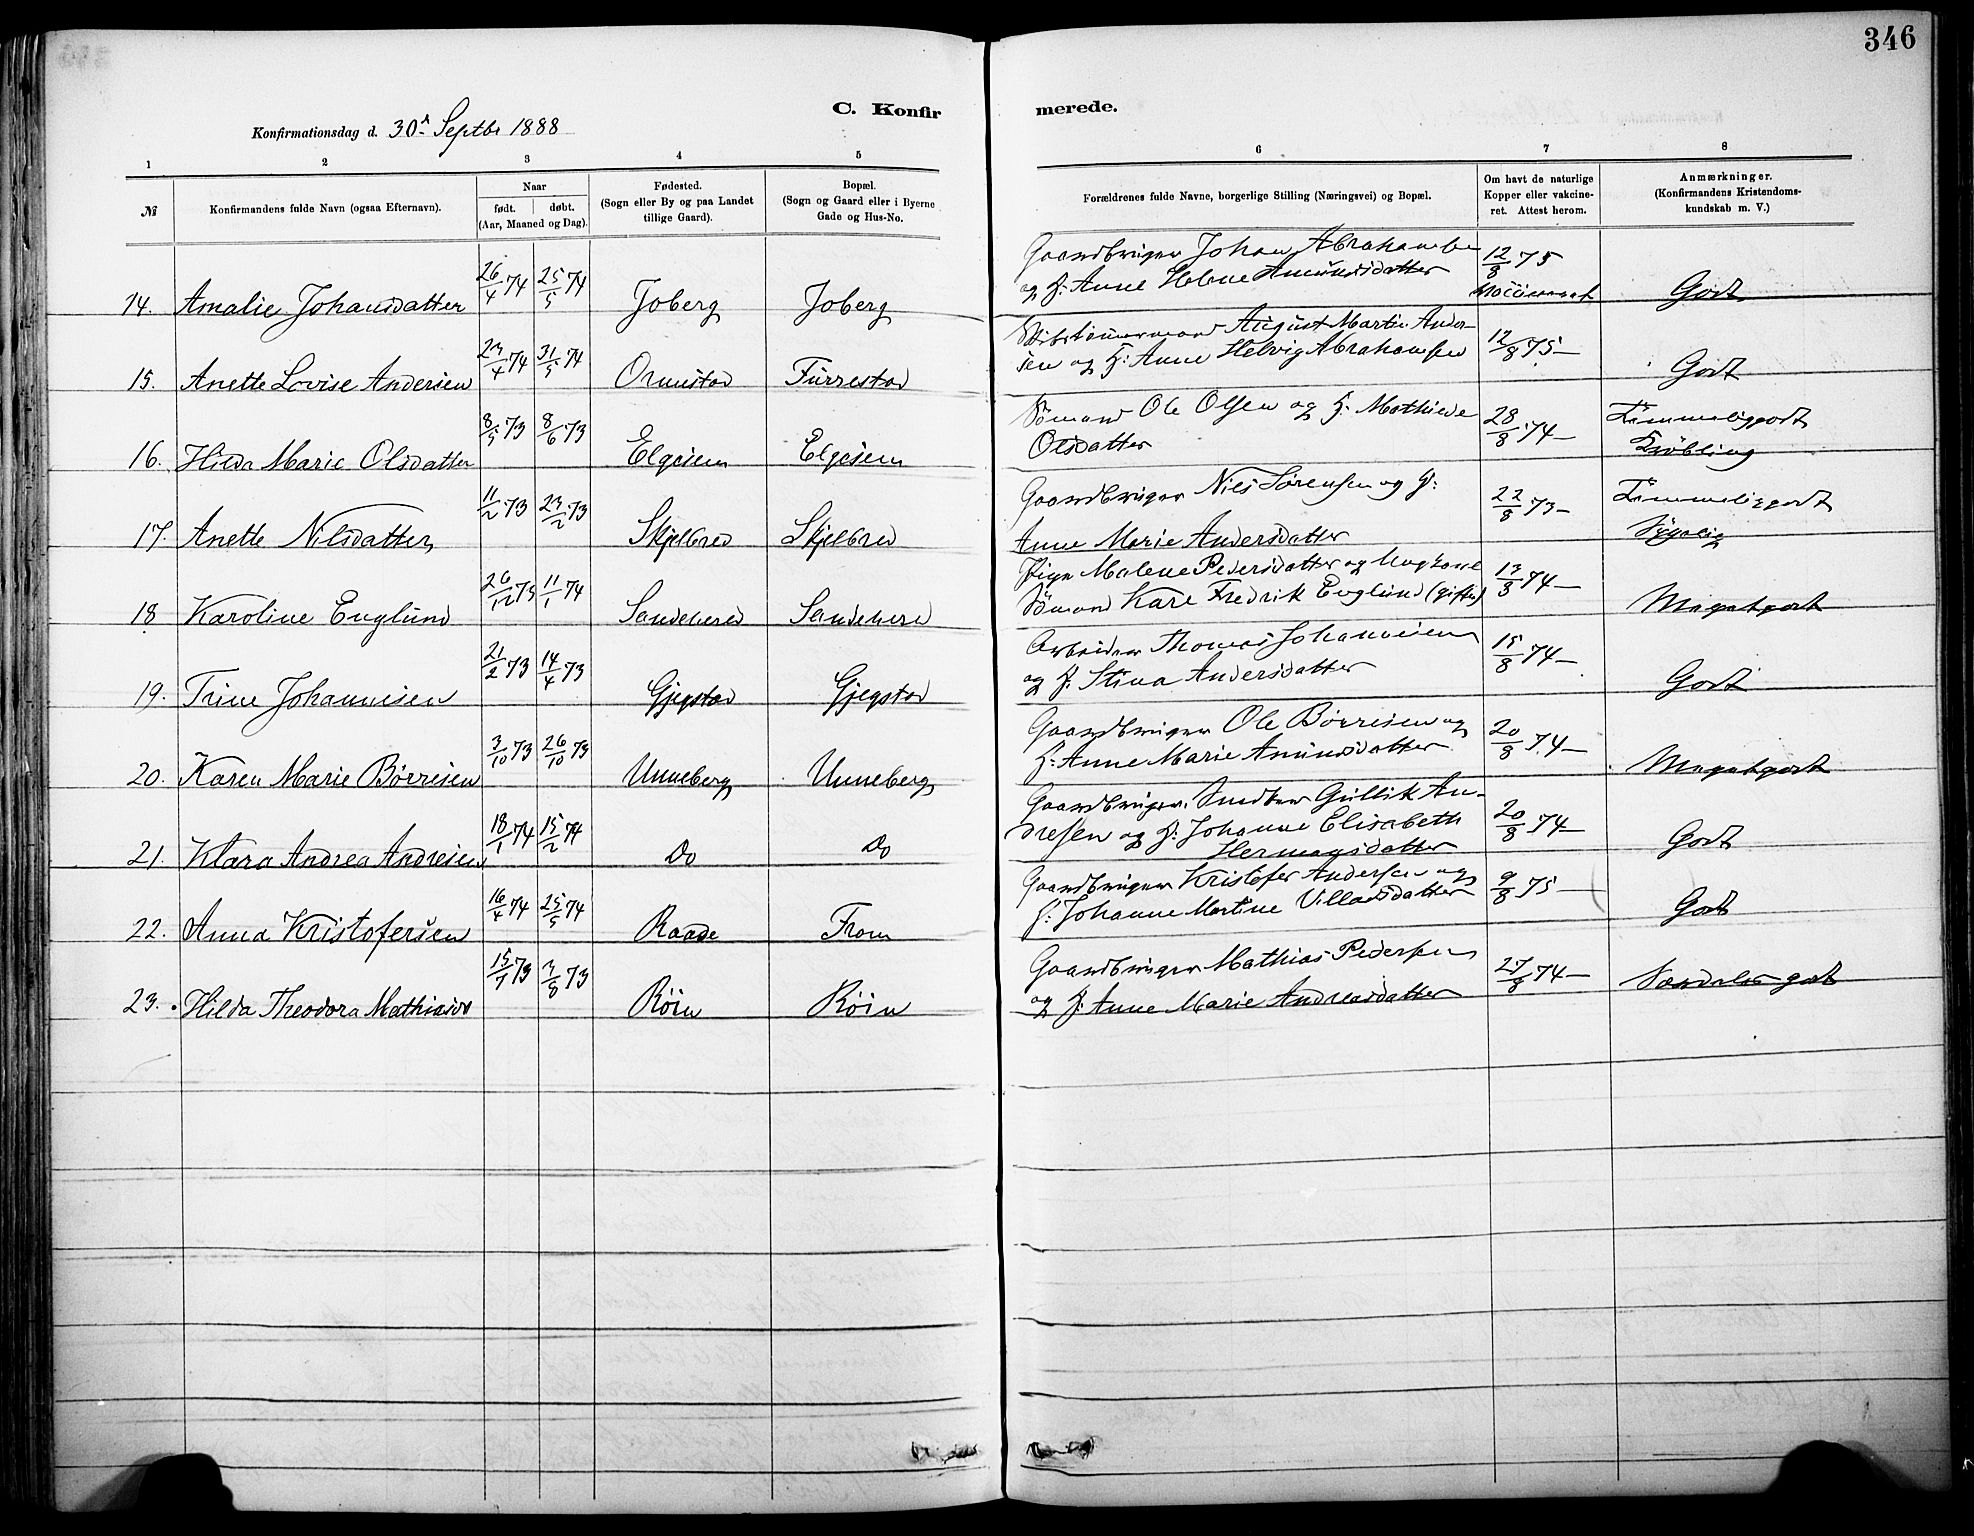 346
C. Konfirmerede.
Konfirmationsdag d. 30. Septbr 1888
1 2 3 4 5 6 7 8
№ Konfirmandens fulde Navn (ogsaa Efternavn). Naar født. døbt. (Aar, Maaned og Dag). Fødested. (Sogn eller By og paa Landet tillige Gaard). Bopæl. (Sogn og Gaard eller i Byerne Gade og Hus-No. Forældrenes fulde Navne, borgerlige Stilling (Næringsvei) og Bopæl. Om havt de naturlige Kopper eller vakcineret. Attest herom. Anmærkninger. (Konfirmandens Kristendomskundskab m. V.)
14. Amalie Johansdatter 26/4 74 25/5 74 Joberg Joberg Gaardbruger Johan Abrahamsen og H: Anne Helene Amundsdatter 12/8 75 Godt
15. Anette Lovise Andersen 23/4 74 31/5 74 Ormestad Furrestad August Martin Andersen og H: Anne Helvig Abrahamsen 12/8 75 – Godt
16. Hilda Marie Olsdatter 8/5 73 8/6 73 Elgesem Elgesem Sømand Ole Olsen og H: Mathilde Olsdatter 28/8 74 – Temmeliggodt
17. Anette Nilsdatter 11/2 73 23/2 73 Skjelbred Skjelbred Gaardbruger Nils Sørensen og H: Anne Marie Andersdatter 22/8 73 – Temmeliggodt Sygelig
18 Karoline Englund 26/12 73 11/1 74 Sandeherred Sandeherred Pige Malene Pedersdatter og Ungkarl Sømand Karl Fredrik Englund (gifte) 13/8 74 – Megetgodt
19. Trine Johannesen 21/2 73 14/4 73 Gjegstad Gjegstad Arbeider Thomas Johannesen og H. Stina Andersdatter 15/8 74 – Godt
20. Karen Marie Børresen 3/10 73 26/10 73 Unneberg Unneberg Gaardbruger Ole Børresen og H: Anne Marie Amundsdatter 20/8 74 – Megetgodt
21. Klara Andrea Andresen 18/1 74 15/2 74 Do Do Gaardbruger. Snedker Gullik Andresen og H: Johanne Elisabeth Hermansdatter 20/8 74 – Godt
22. Anna Kristofersen 16/4 74 25/5 74 Raade From Gaardbruger Kristofer Andersen og H: Johanne Martine Villadsdatter 9/8 75 – Godt
23. Hilda Theodora Mathiasd 15/7 73 3/8 73 Røin Røin Gaardbruger Mathias Pedersen og H. Anne Marie Andreasdatter 27/8 74 – Særdeles godt